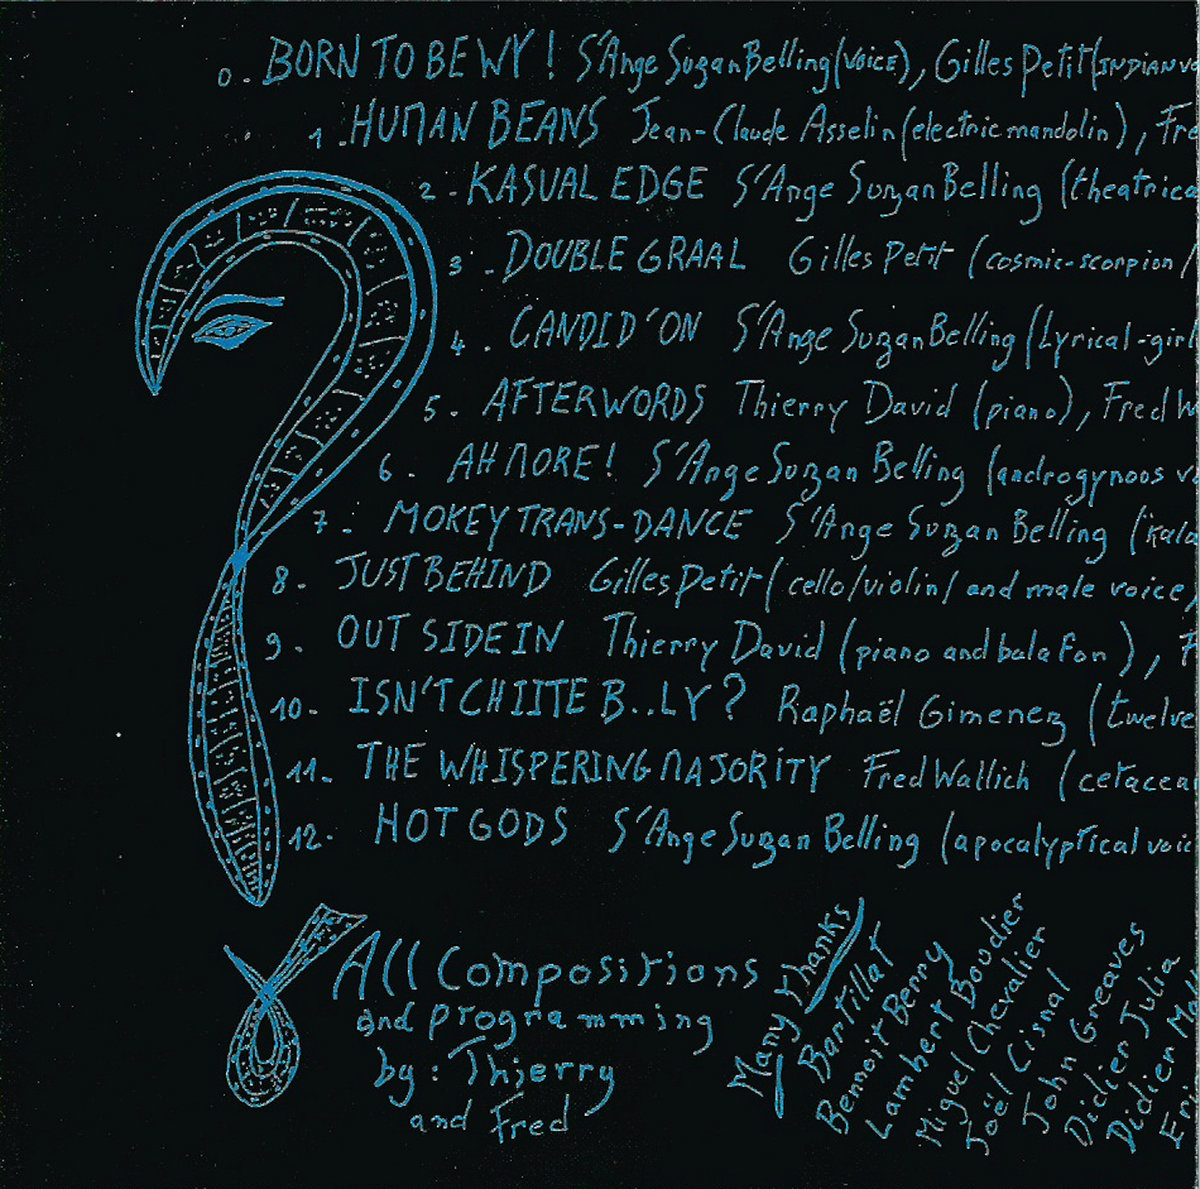 0. BORN TO BE WY! S'Ange Suzan Belling (voice), Gilles Petit (INDIAN
1. HUMAN BEANS Jean-Claude Asselin (electric mandolin), Fre
2. KASUAL EDGE S'Ange Suzan Belling (theatrica
3. DOUBLE GRAAL Gilles Petit (cosmic-scorpion/
4. CANDID'ON S'Ange Suzan Belling (Lyrical-girl
5. AFTERWORDS Thierry David (piano), Fred W
6. AH MORE! S'Ange Suzan Belling (androgynoos v
7. MOKEY TRANS-DANCE S'Ange Suzan Belling ("kala
8. JUST BEHIND Gilles Petit (cello/violin/ and male voice
9. OUT SIDE IN Thierry David (piano and balafon), F
10. ISN'T CHIITE B..LY? Raphaël Gimenez (twelve
11. THE WHISPERING MAJORITY Fred Wallich (cetacea
12. HOT GODS S'Ange Suzan Belling (apocalyptical voic
All Compositions
and programming
by: Thierry
and Fred
Many thanks
Bartillat
Bennoit Berry
Lambert Boudier
Miguel Chevalier
Joël Cisnal
John Greaves
Didier Julia
Didier